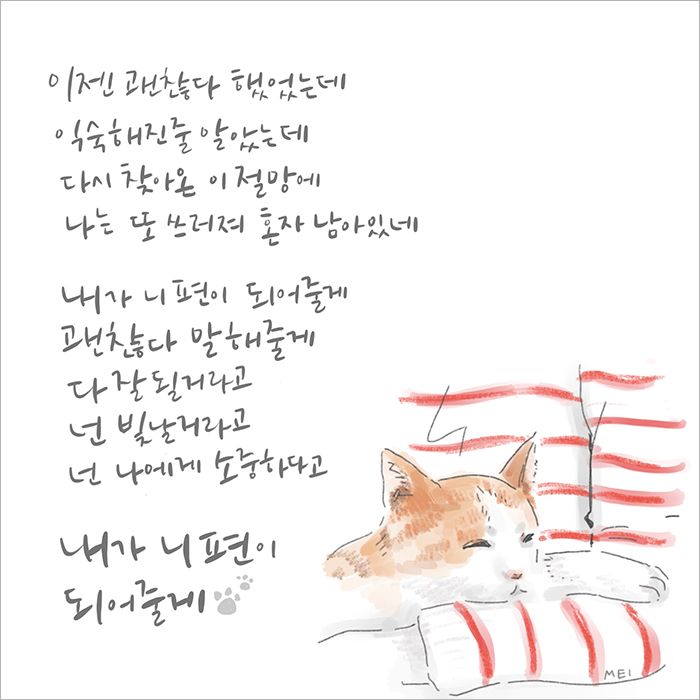 이젠 괜찮다 했었는데
익숙해진줄 알았는데
다시 찾아온 이 절망에
나는 또 쓰러져 혼자 남아있네
내가 니 편이 되어줄게
괜찮다 말해줄게
다 잘 될거라고
넌 빛날거라고
넌 나에게 소중하다고
내가 니 편이
되어줄게
MEI